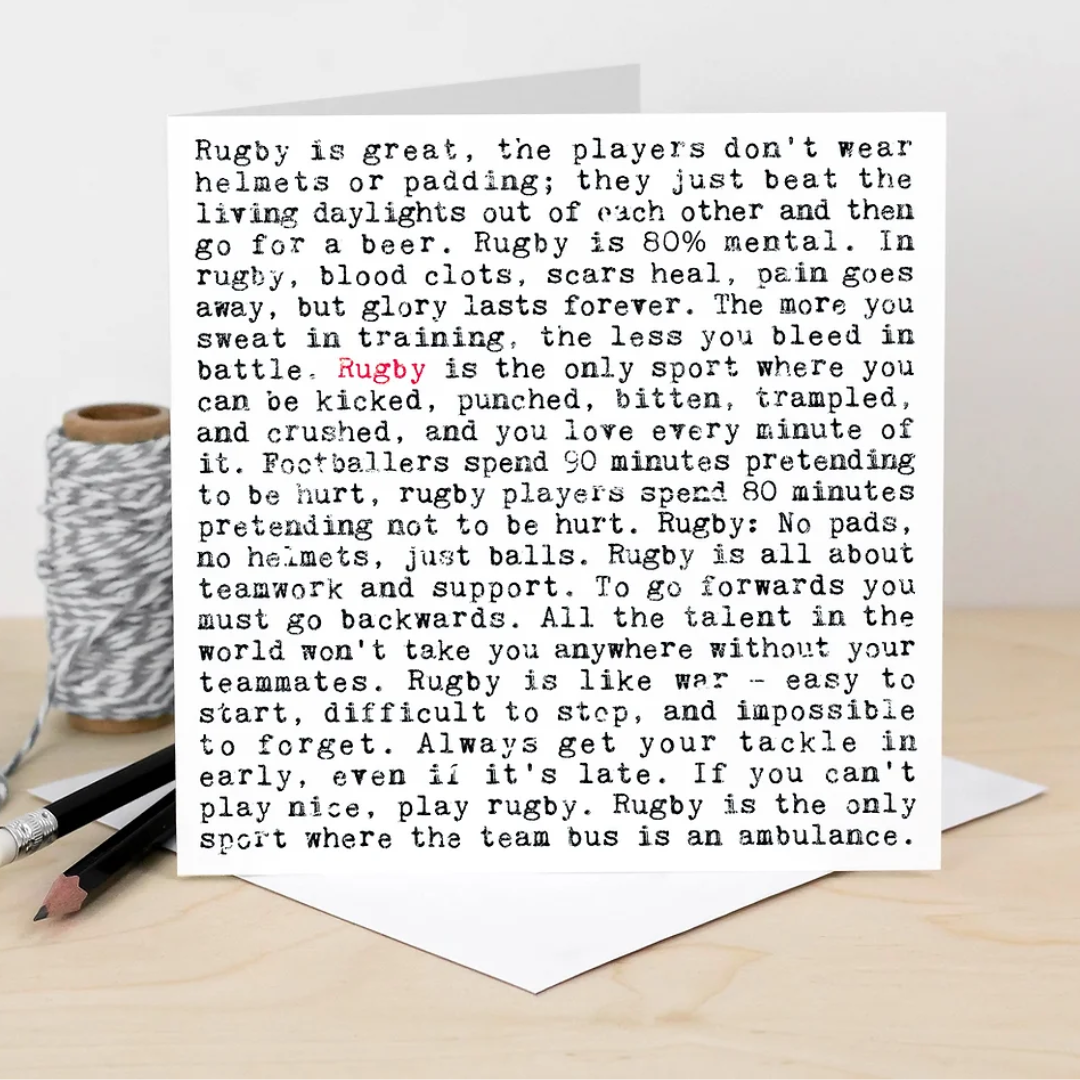 Rugby is great, the players don't wear
helmets or padding; they just beat the
living daylights out of each other and then
go for a beer. Rugby is 80% mental. In
rugby, blood clots, scars heal, pain goes
away, but glory lasts forever. The more you
sweat in training, the less you bleed in
battle. Rugby is the only sport where you
can be kicked, punched, bitten, trampled,
and crushed, and you love every minute of
it. Footballers spend 90 minutes pretending
to be hurt, rugby players spend 80 minutes
pretending not to be hurt. Rugby: No pads,
no helmets, just balls. Rugby is all about
teamwork and support. To go forwards you
must go backwards. All the talent in the
world won't take you anywhere without your
teammates. Rugby is like war - easy to
start, difficult to stop, and impossible
to forget. Always get your tackle in
early, even if it's late. If you can't
play nice, play rugby. Rugby is the only
sport where the team bus is an ambulance.